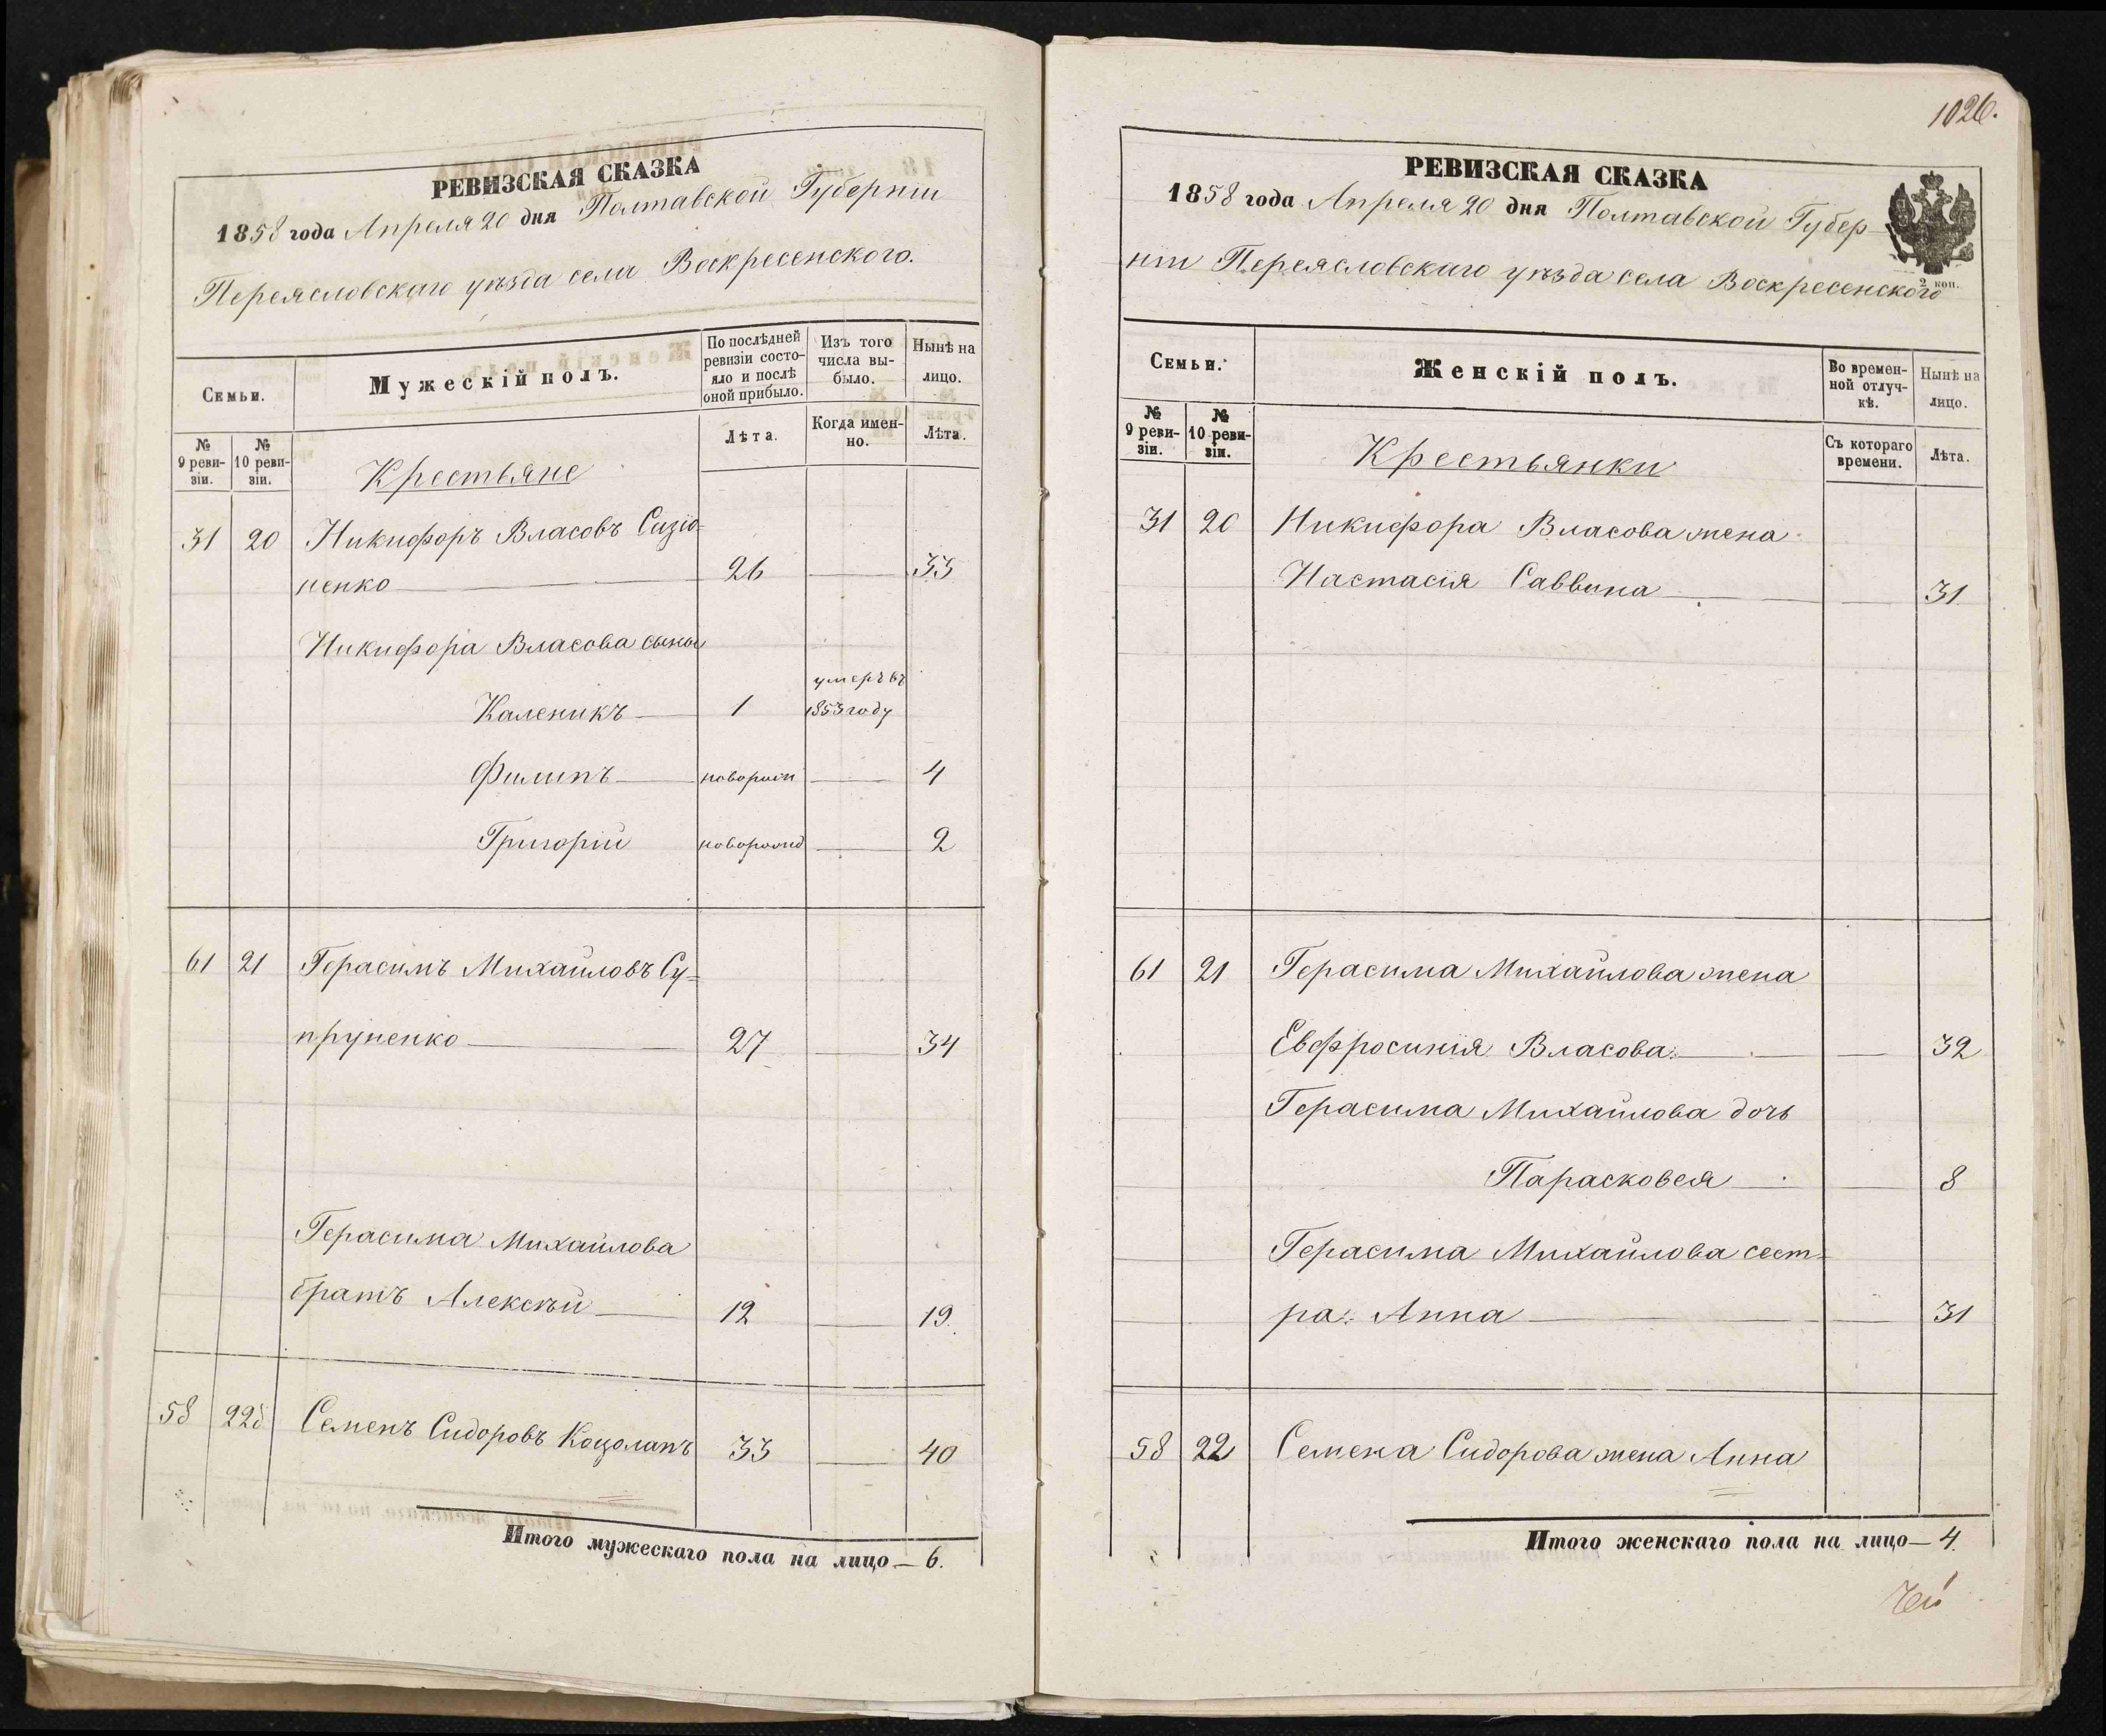 РЕВИЗСКАЯ СКАЗКА
1858 года Апреля 20 дня Полтавской Губерніи
Переясловскаго уѣзда села Воскресенского.
Семьи.
Мужескій полъ.
По послѣдней ревизіи состояло и послѣ оной прибыло.
Изъ того числа выбыло.
Нынѣ на лицо.
№ 9 ревизіи.
№ 10 ревизіи.
Крестьяне
Лѣта.
Когда именно.
Лѣта.
31 20 Никифоръ Власовъ Сизіо=
ненко 26 — 33
Никифора Власова сыны
умеръ въ
Каленикъ 1 1853 году
Филипъ — 4
Григорій — 2
61 21 Герасимъ Михайловъ Су=
пруненко 27 — 34
Герасима Михайлова
братъ Алексѣй 12 — 19.
58 22 Семенъ Сидоровъ 33 — 40
Итого мужескаго пола на лицо — 6.
1026.
РЕВИЗСКАЯ СКАЗКА
1858 года Апреля 20 дня Полтавской Губер
ніи Переясловскаго уѣзда села Воскресенского
2 коп.
Семьи.
Женскій полъ.
Во временной отлучкѣ.
Нынѣ на лицо.
№ 9 ревизіи.
№ 10 ревизіи.
Крестьянки
Съ котораго времени.
Лѣта.
31 20 Никифора Власова жена
Настасія Саввина — 31
61 21 Герасима Михайлова жена
Евфросинія Власова — 32
Герасима Михайлова дочь
Парасковея — 8
Герасима Михайлова сест=
ра: Анна — 31
58 22 Семена Сидорова жена Анна
Итого женскаго пола на лицо — 4.